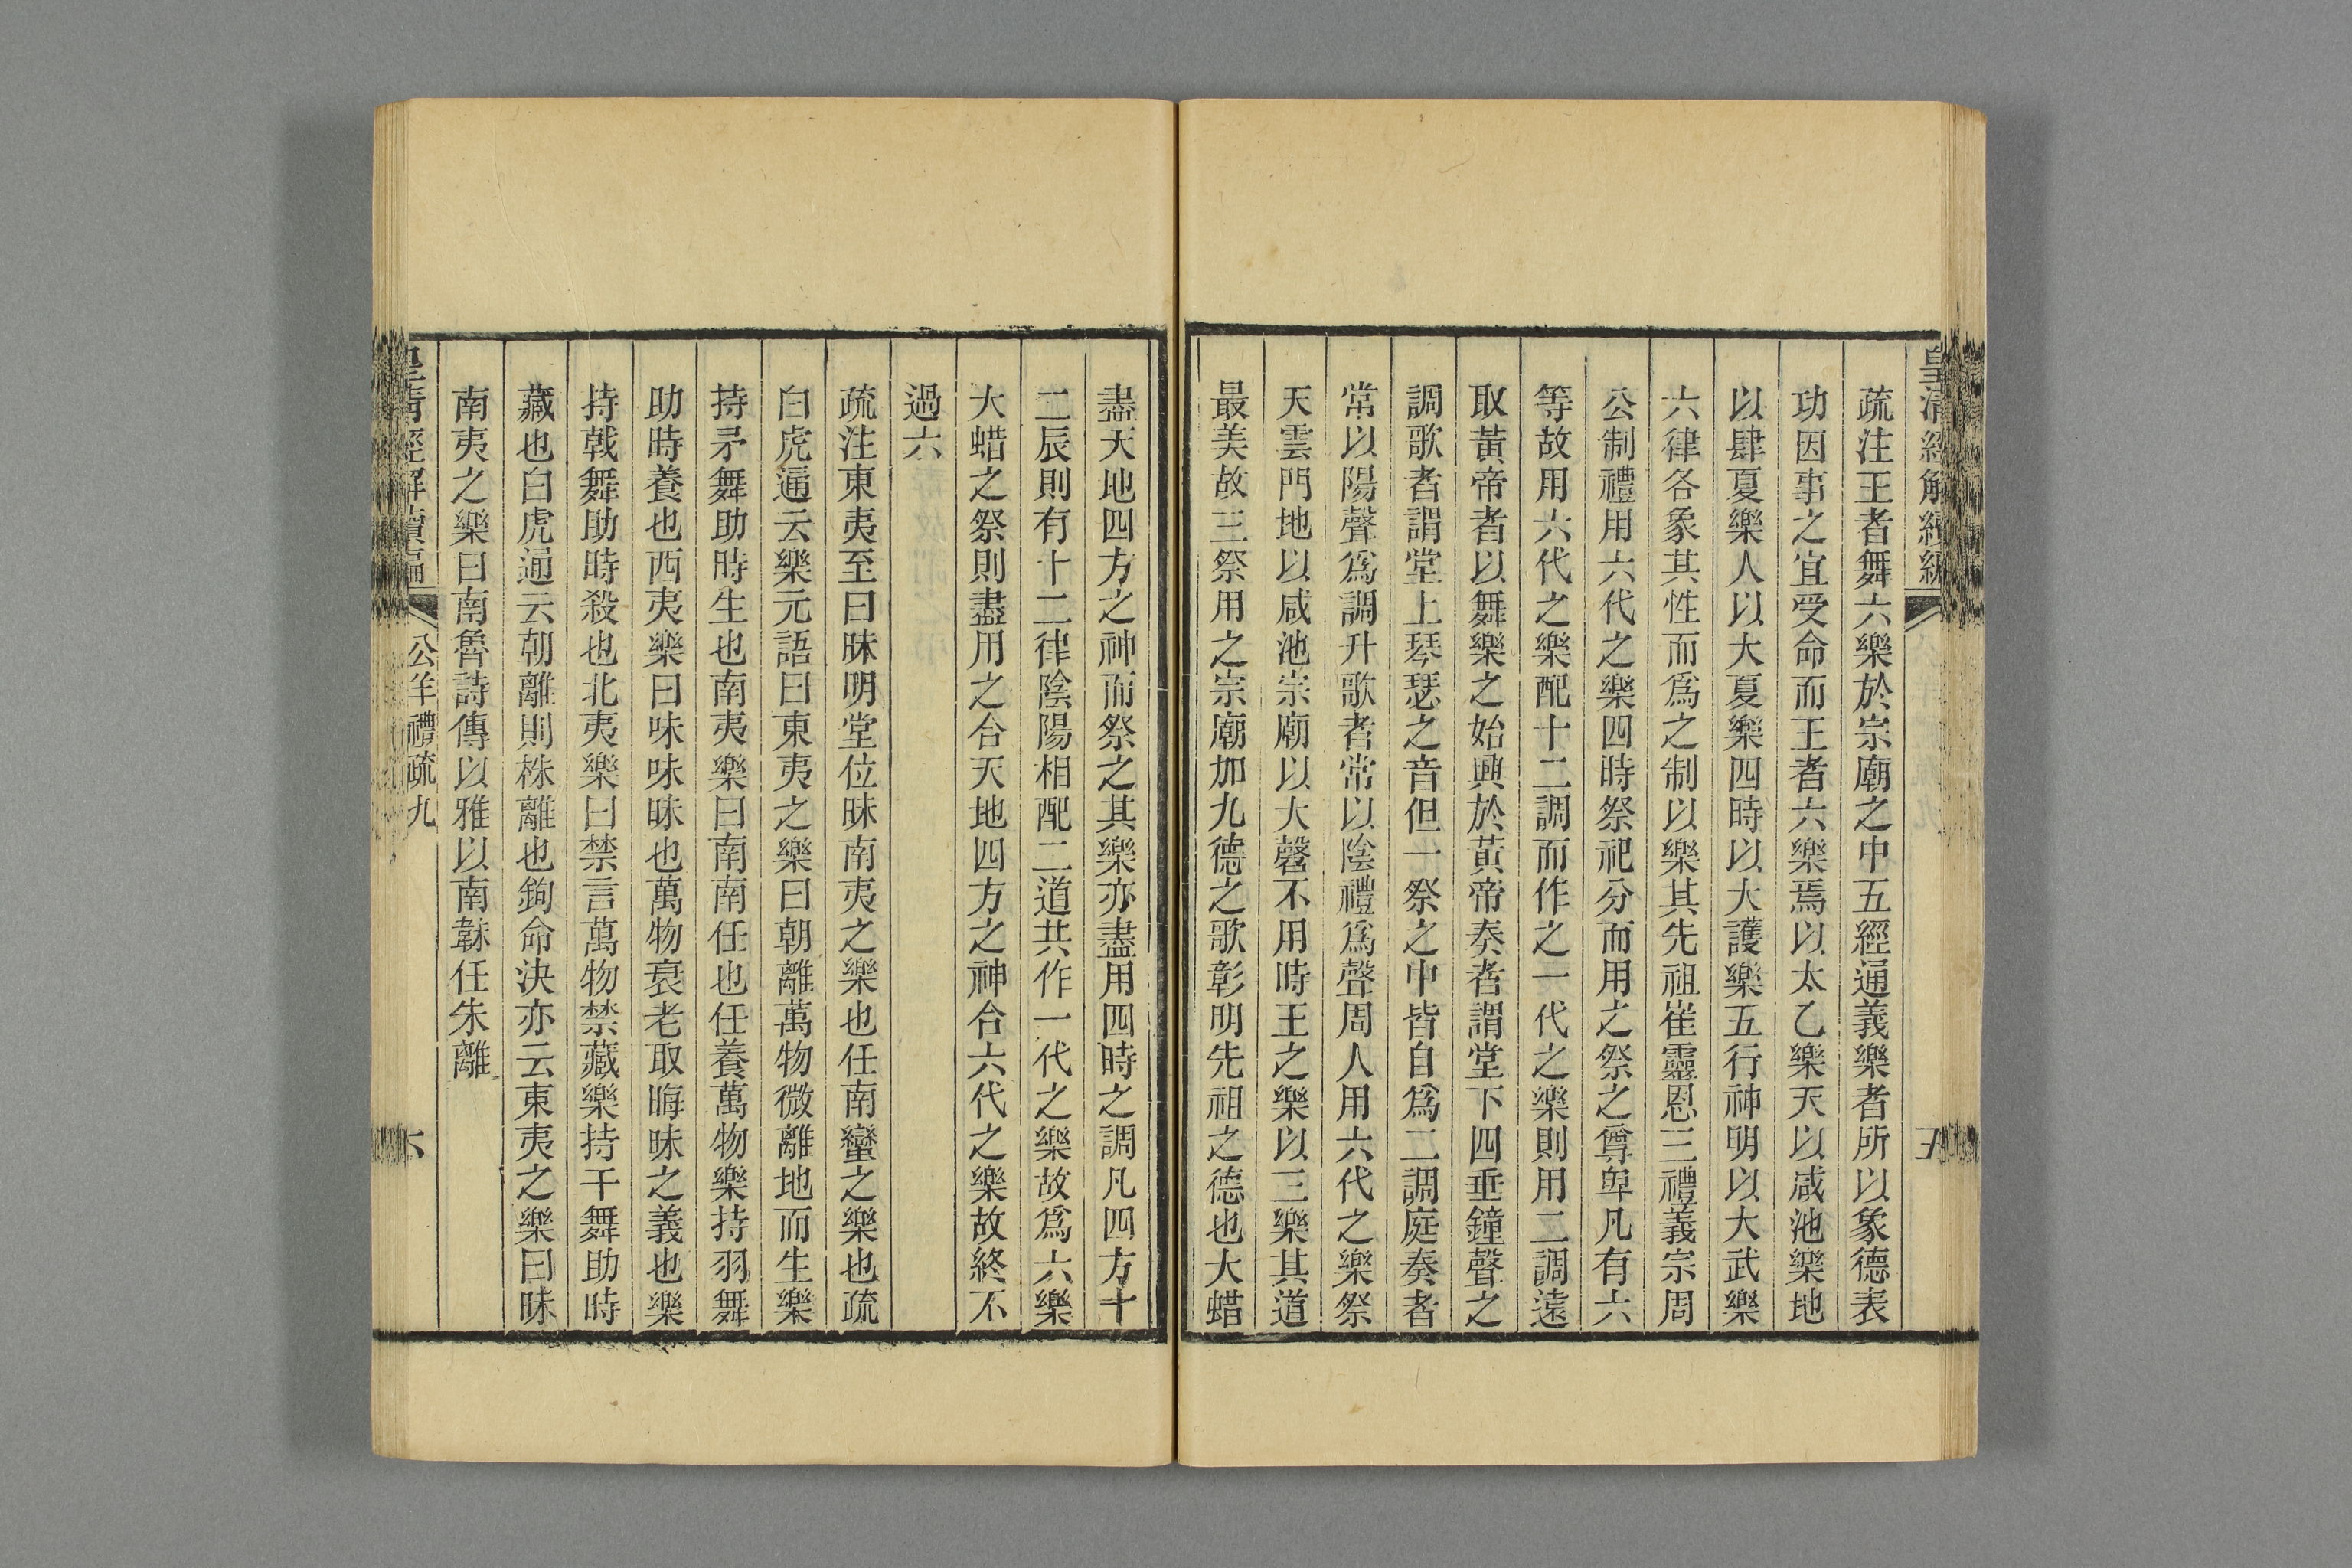 皇清經解續編
五
疏注王者舞六樂於宗廟之中五經通義樂者所以象德表
功因事之宜受命而王者六樂焉以太乙樂天以咸池樂地
以肆夏樂人以大夏樂四時以大護樂五行神明以大武樂
六律各象其性而爲之制以樂其先祖崔靈恩三禮義宗周
公制禮用六代之樂四時祭祀分而用之祭之尊卑凡有六
等故用六代之樂配十二調而作之一代之樂則用二調遠
取黃帝者以舞樂之始興於黃帝奏者謂堂下四垂鐘聲之
調歌者謂堂上琴瑟之音但一祭之中皆自爲二調庭奏者
常以陽聲爲調升歌者常以陰禮爲聲周人用六代之樂祭
天雲門地以咸池宗廟以大磬不用時王之樂以三樂其道
最美故三祭用之宗廟加九德之歌彰明先祖之德也大蜡
盡天地四方之神而祭之其樂亦盡用四時之調凡四方十
二辰則有十二律陰陽相配二道共作一代之樂故爲六樂
大蜡之祭則盡用之合天地四方之神合六代之樂故終不
過六
疏注東夷至曰昧明堂位昧南夷之樂也任南蠻之樂也疏
白虎通云樂元語曰東夷之樂曰朝離萬物微離地而生樂
持矛舞助時生也南夷樂曰南南任也任養萬物樂持羽舞
助時養也西夷樂曰味味昧也萬物衰老取晦昧之義也樂
持戟舞助時殺也北夷樂曰禁言萬物禁藏樂持干舞助時
藏也白虎通云朝離則株離也鉤命決亦云東夷之樂曰昧
南夷之樂曰南魯詩傳以雅以南韎任朱離
皇清經解續編
公羊禮疏九
六